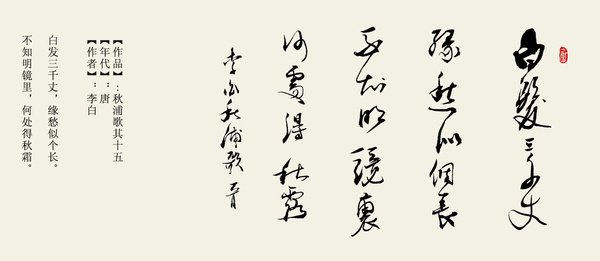 白髮三千丈
緣愁似個長
不知明鏡裏
何處得秋霜
李白秋浦歌
【作品】：秋浦歌其十五
【年代】：唐
【作者】：李白
白发三千丈，缘愁似个长。
不知明镜里，何处得秋霜。